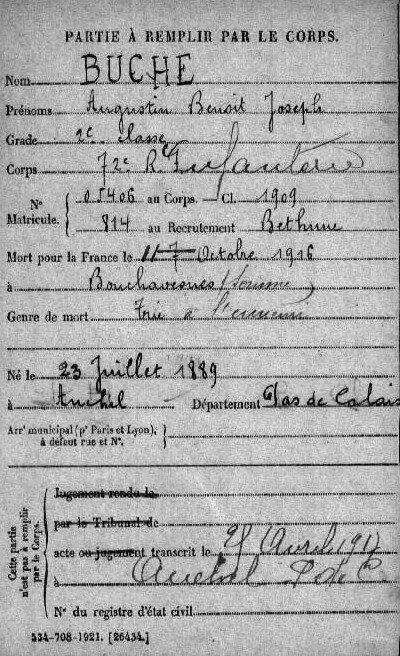 PARTIE À REMPLIR PAR LE CORPS.
Nom BUCHE
Prénoms Augustin Benoit Joseph
Grade 2e classe
Corps 72e R. Infanterie
N° Matricule. { 05406 au Corps. — Cl. 1909
814 au Recrutement Bethune
Mort pour la France le 11 7 Octobre 1916
à Bouchavesnes (Somme)
Genre de mort Tué à l'ennemi
Né le 23 Juillet 1889
à Auchel Département Pas de Calais
Arrt municipal (pr Paris et Lyon), à défaut rue et N°. }
Cette partie n'est pas à remplir par le Corps.
Jugement rendu le
par le Tribunal de
acte ou jugement transcrit le Avril 1917
à Auchel P. de C.
N° du registre d'état civil
534-708-1921. [26434.]